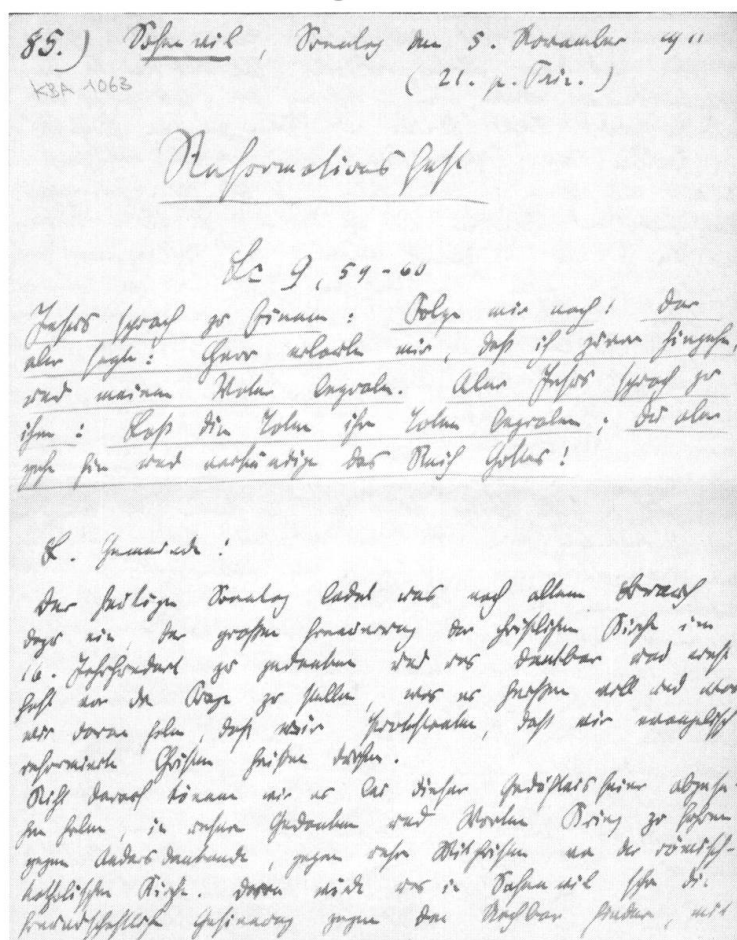 85.) Safenwil, Sonntag den 5. November 1911
KBA 1063
(21. p. Trin.)
Reformationsfest
Lc 9, 59-60
Jesus sprach zu Einem: Folge mir nach! Der
aber sagte: Herr erlaube mir, daß ich zuvor hingehe,
und meinen Vater begrabe. Aber Jesus sprach zu
ihm: Laß die Toten ihre Toten begraben; du aber
gehe hin und verkündige das Reich Gottes!
L. Gemeinde!
Der heutige Sonntag ladet uns nach altem Brauch
dazu ein, der großen Erneuerung der christlichen Kirche im
16. Jahrhundert zu gedenken und uns dankbar und ernst
vor die Frage zu stellen, was es heißen will und was
wir daran haben, daß wir Protestanten, daß wir evangelisch
reformierte Christen heißen dürfen.
Nicht darauf können wir es bei dieser Gedächtnisfeier abgese-
hen haben, in unsern Gedanken und Worten Krieg zu führen
gegen Andersdenkende, gegen unsre Mitchristen von der römisch-
katholischen Kirche. Daran würde uns in Safenwil schon die
freundschaftliche Gesinnung gegen den Nachbar hindern, mit